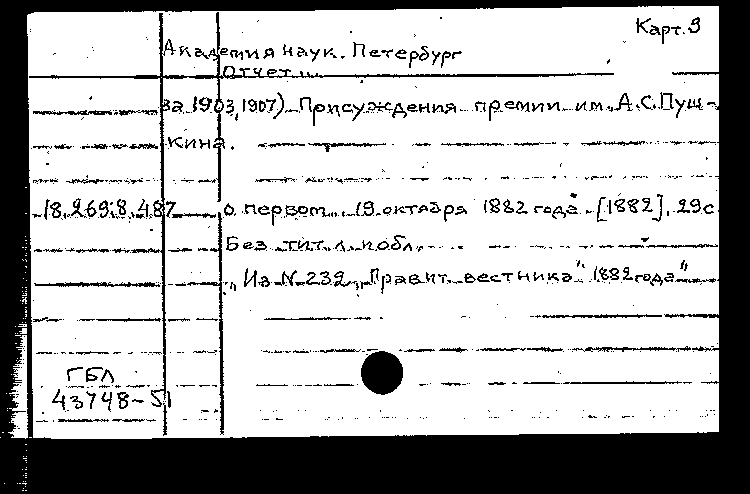 Карт. 9
Академия наук. Петербург
Отчет ...
за 1903, 1907) Присуждения премии им. А.С. Пуш-
кина.
18.269.8.487 о первом... 19 октября 1882 года". [1882], 29с.
Без тит. л. и обл.
"Из N. 239 "Правит. вестника" 1882 года"
ГБЛ
43748-51